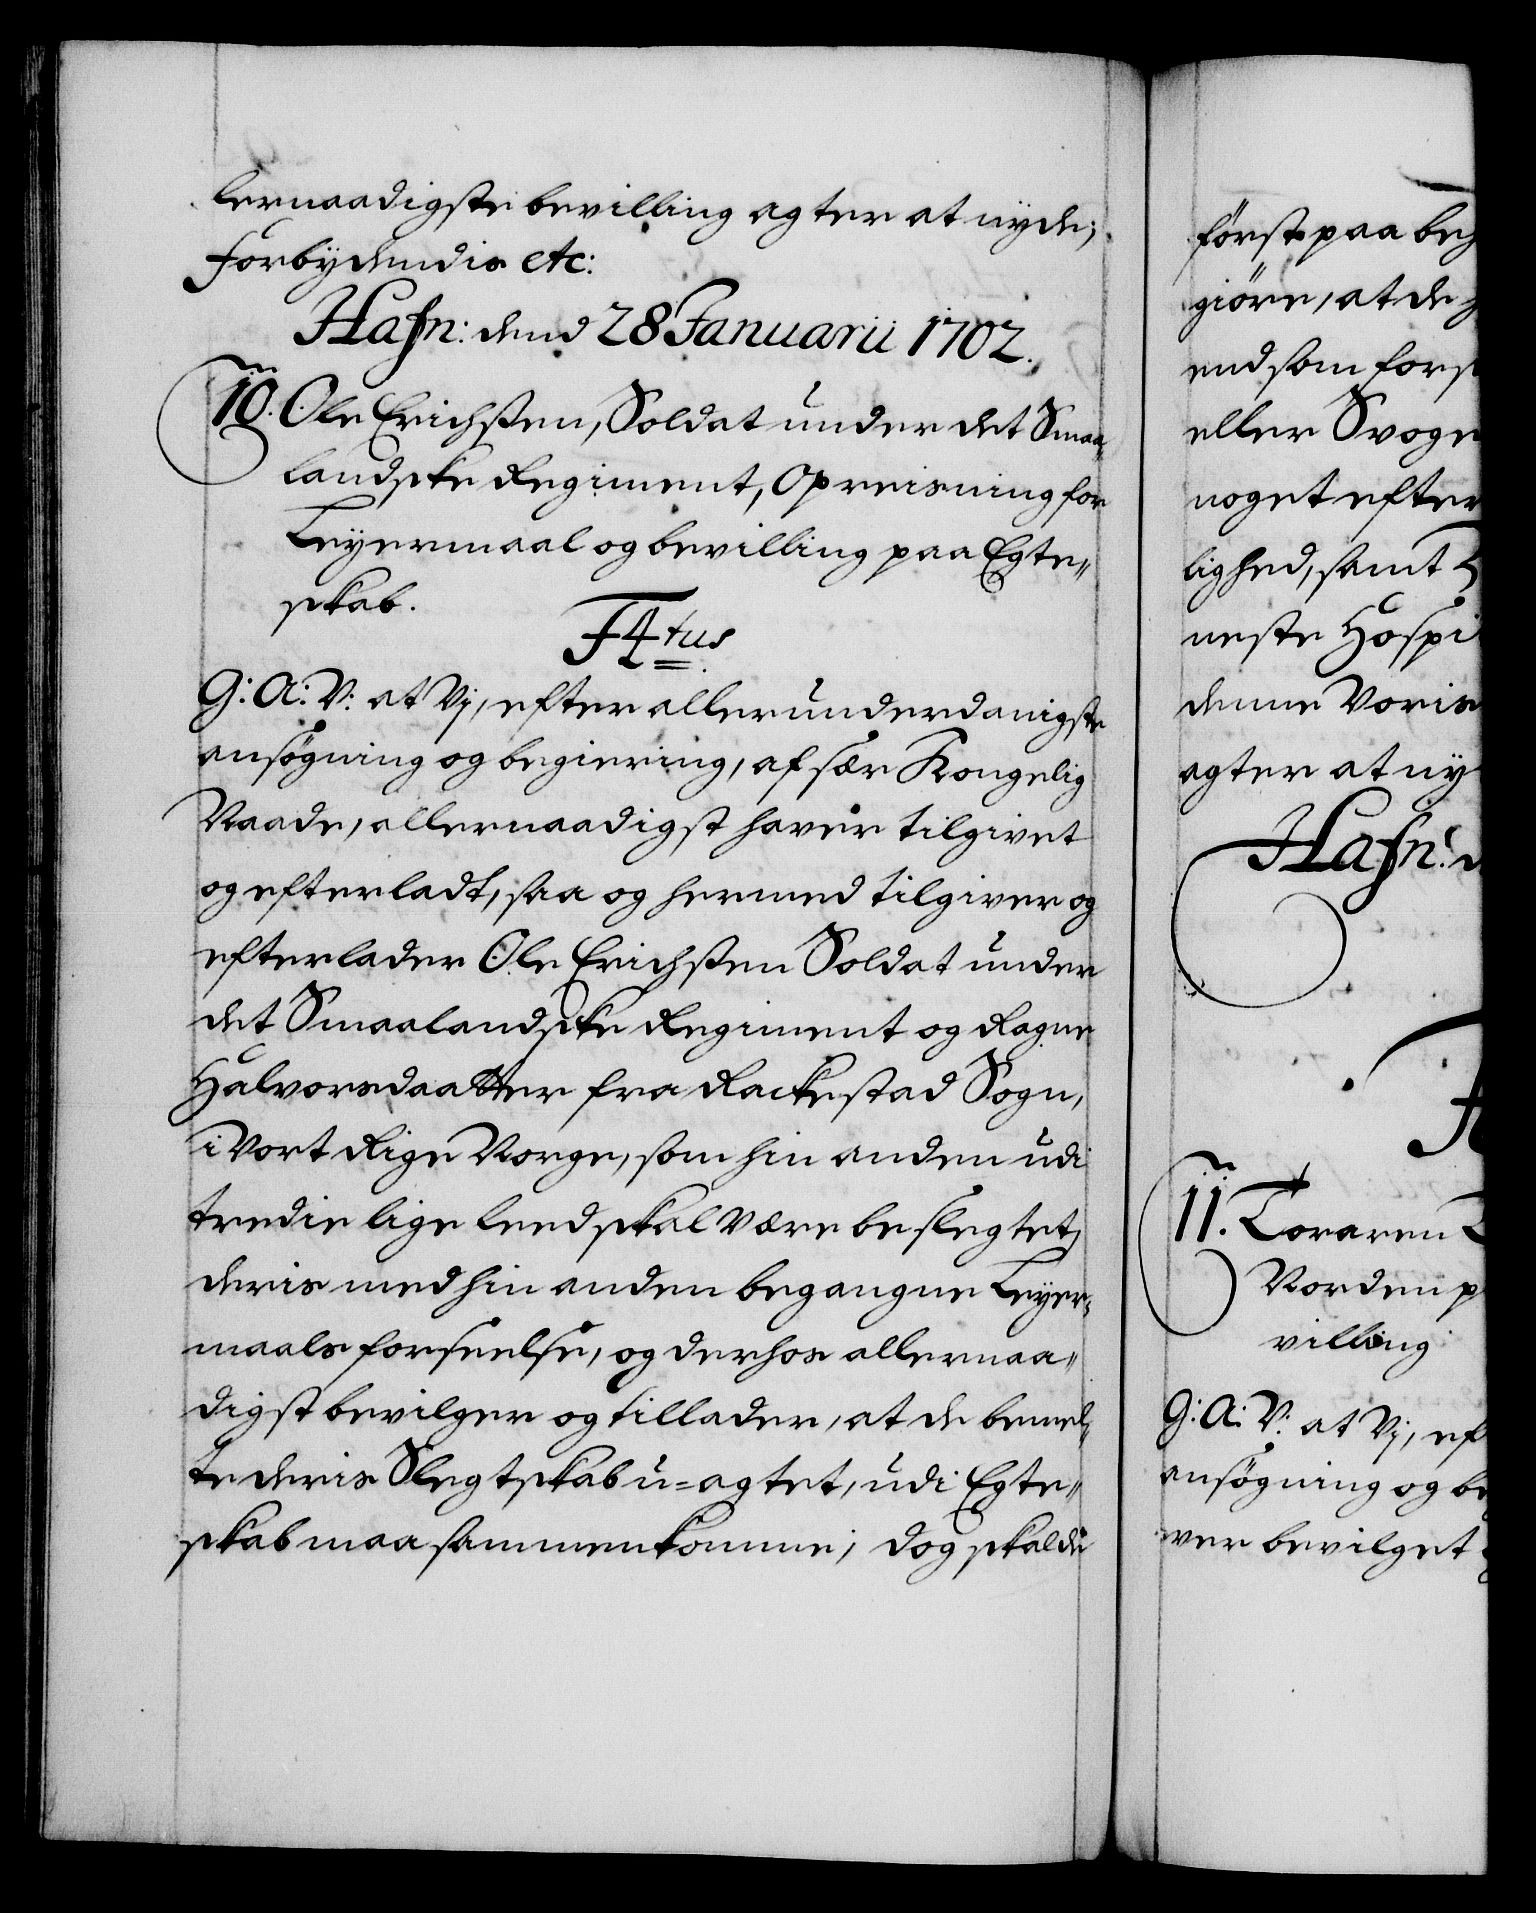 lernaadigste bevilling agter at nyde;
Forbydendis etc:
Hafn: dend 28 Januarii 1702.
10. Ole Erichsten, Soldat under det Smaa„
landske Regiment, Opreisning for
Leyermaal og bevilling paa Egte„
skab.
F4tus
G: A: V: at Vj, efter allerunderdanigste
ansøgning og begiering, af sær Kongelig
Naade, allernaadigst haver tilgivet
og efterladt, saa og hermed tilgiver og
efterlader Ole Erichsten Soldat under
det Smaalandske Regiment og Ragne
Halvorsdaatter fra Rackestad Sogn,
i Vort Rige Norge, som hin anden udi
tredie lige leed skal være beslegtet,
deris med hin anden begangne Leyer„
maals forseelse, og derhos allernaa„
digst bevilger og tillader, at de bemel„
te deris Slegtskab u=agtet, udi Egte„
skab maa sammenkomme; dog skal de
først paa beg
giøre, at de
end som forsk
eller Svoger
noget efter
lighed, samt
neste Hospi
denne Voris
agter at ny
Hafn: d
11. Toraren
Norden p
villing
G: A: V: at Vj, ef
ansøgning og be
ver bevilget